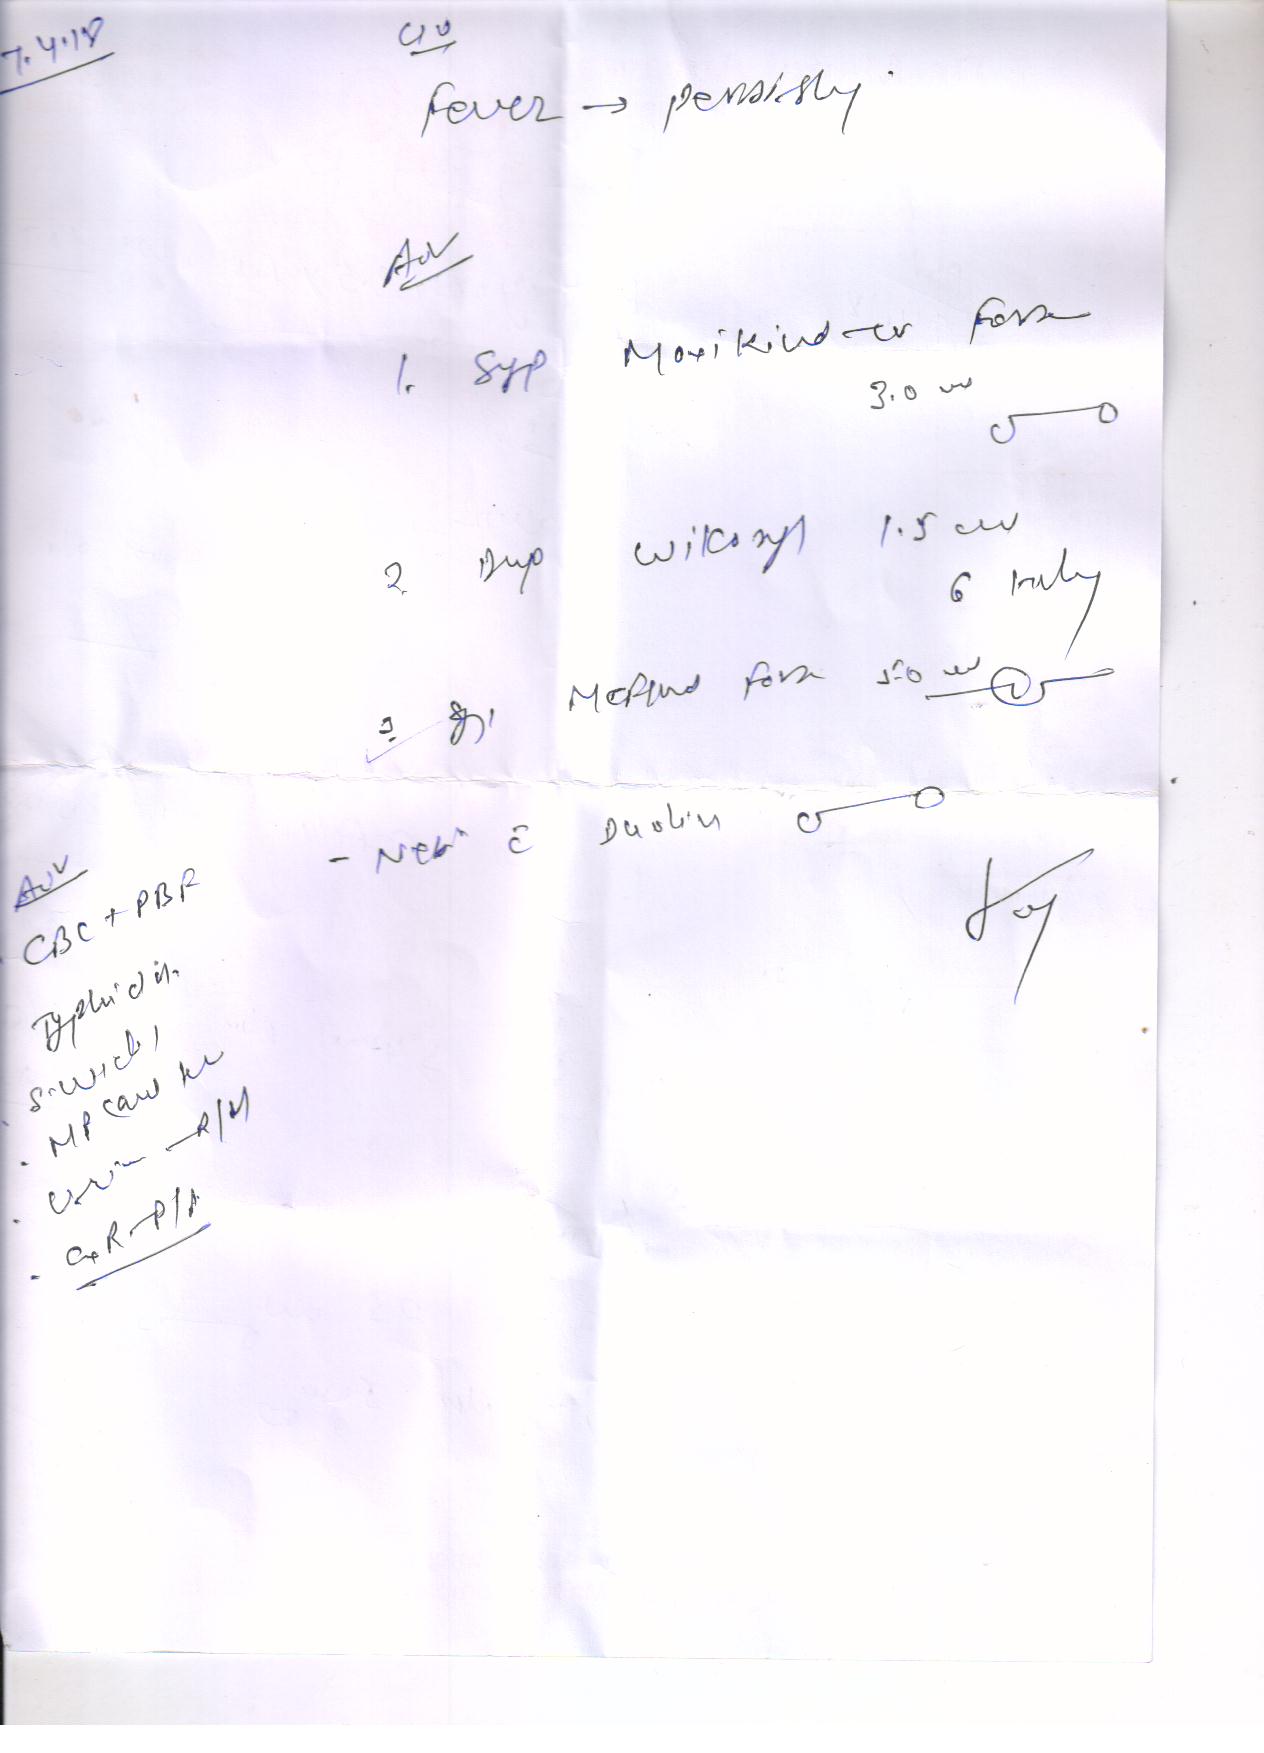 7.4.18
c/o
Fever → persisting
Adv
1. Syp Moxikind-cv Forte
3.0 ml
2. Drop Wikoryl 1.5 ml
6 hrly
3 Syp Mefkind Forte 5.0 ml
- Neb c̄ Duolin
Adv
CBC + PBF
Typhidot
S. widal
MP card
Urine - R/M
CXR - P/A